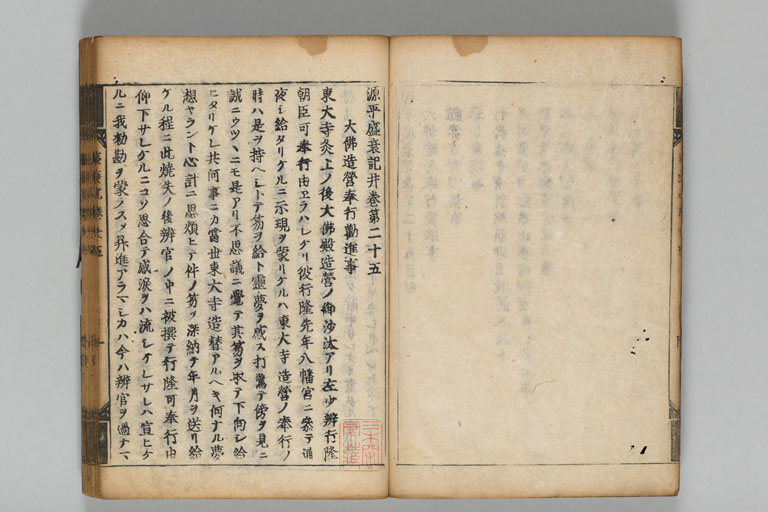 源平盛衰記井巻第二十五
大佛造營奉行勸進事
東大寺炎上ノ後大佛殿造營ノ御沙汰アリ左少辨行隆
朝臣可奉行由ヱラハレケリ彼行隆先年八幡宮ニ参テ通
夜シ給タリケルニ示現ヲ蒙リケルハ東大寺造營ノ奉行ノ
時ハ是ヲ持ヘシトテ笏ヲ給ト靈夢ヲ感ス打驚テ傍ヲ見ニ
誠ニウツヽニモ是アリ不思議ニ覺テ其笏ヲ取テ下向シ給
ヒタリケレ共何事ニカ當世東大寺造替アルヘキ何ナル夢
想ヤラント心計ニ思煩ヒテ件ノ笏ヲ深納テ年月ヲ送リ給
ケル程ニ此燒失ノ後辨官ノ中ニ被撰テ行隆可奉行由
仰下サレケルニコソ思合テ感淚ヲハ流シケレサレハ宣ヒケ
ルニ我勅勘ヲ蒙ノスッ昇進アラマシカハ今ハ辨官ヲ過ナマ